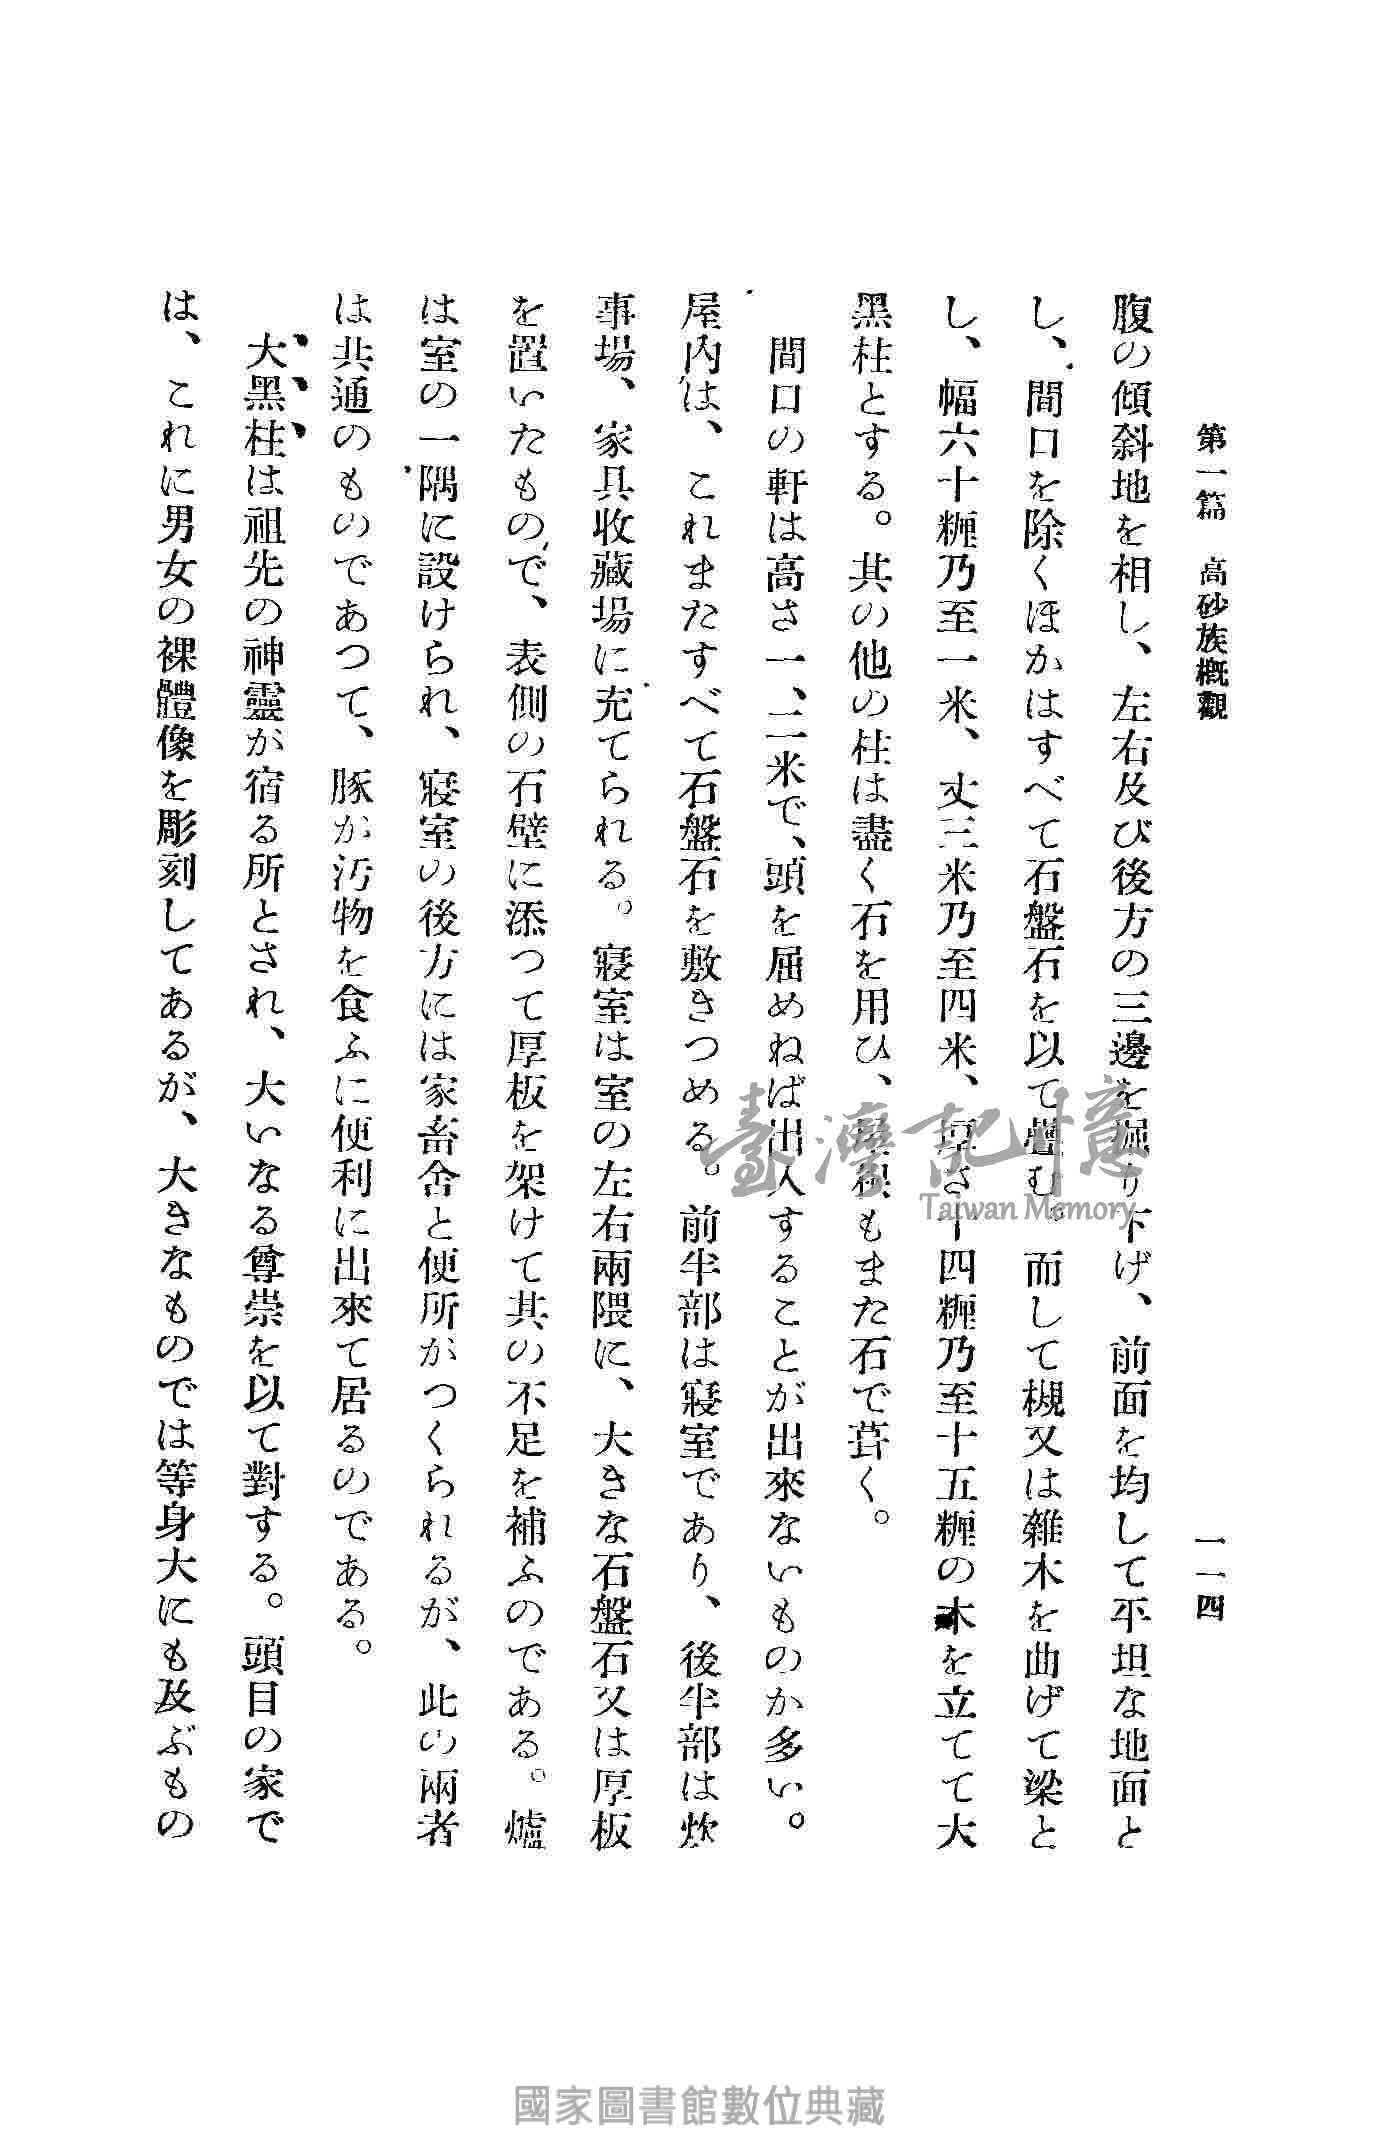 第一篇 高砂族概觀
一一四
腹の傾斜地を相し、左右及び後方の三邊を掘り下げ、前面を均して平坦な地面と
し、間口を除くほかはすべて石盤石を以て疊む。而して槻又は雜木を曲げて梁と
し、幅六十糎乃至一米、丈三米乃至四米、厚さ十四糎乃至十五糎の木を立てて大
黑柱とする。其の他の柱は盡く石を用ひ、屋根もまた石で葺く。
間口の軒は高さ一、二米で、頭を屈めねば出入することが出來ないものが多い。
屋內は、これまたすべて石盤石を敷きつめる。前半部は寢室であり、後半部は炊
事場、家具收藏場に充てられる。寢室は室の左右兩隈に、大きな石盤石又は厚板
を置いたもので、表側の石壁に添つて厚板を架けて其の不足を補ふのである。爐
は室の一隅に設けられ、寢室の後方には家畜舍と便所がつくられるが、此の兩者
は共通のものであつて、豚が汚物を食ふに便利に出來て居るのである。
大黑柱は祖先の神靈が宿る所とされ、大いなる尊崇を以て對する。頭目の家で
は、これに男女の裸體像を彫刻してあるが、大きなものでは等身大にも及ぶもの
臺灣記憶
Taiwan Memory
國家圖書館數位典藏